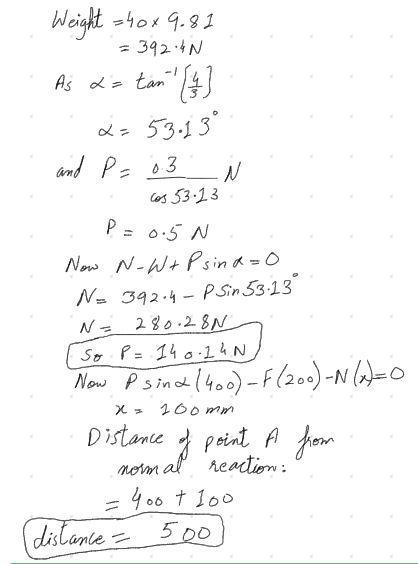 Weight = 40 x 9.81
= 392.4N
As α = tan⁻¹[4/3]
α = 53.13°
and P = 03 / cos 53.13 N
P = 0.5 N
Now N-W+Psinα=0
N= 392.4 - PSin53.13°
N= 280.28N
So P= 140.14N
Now Psinα(400)-F(200)-N(x)=0
x = 100mm
Distance of point A from
normal reaction:
= 400 + 100
distance = 500